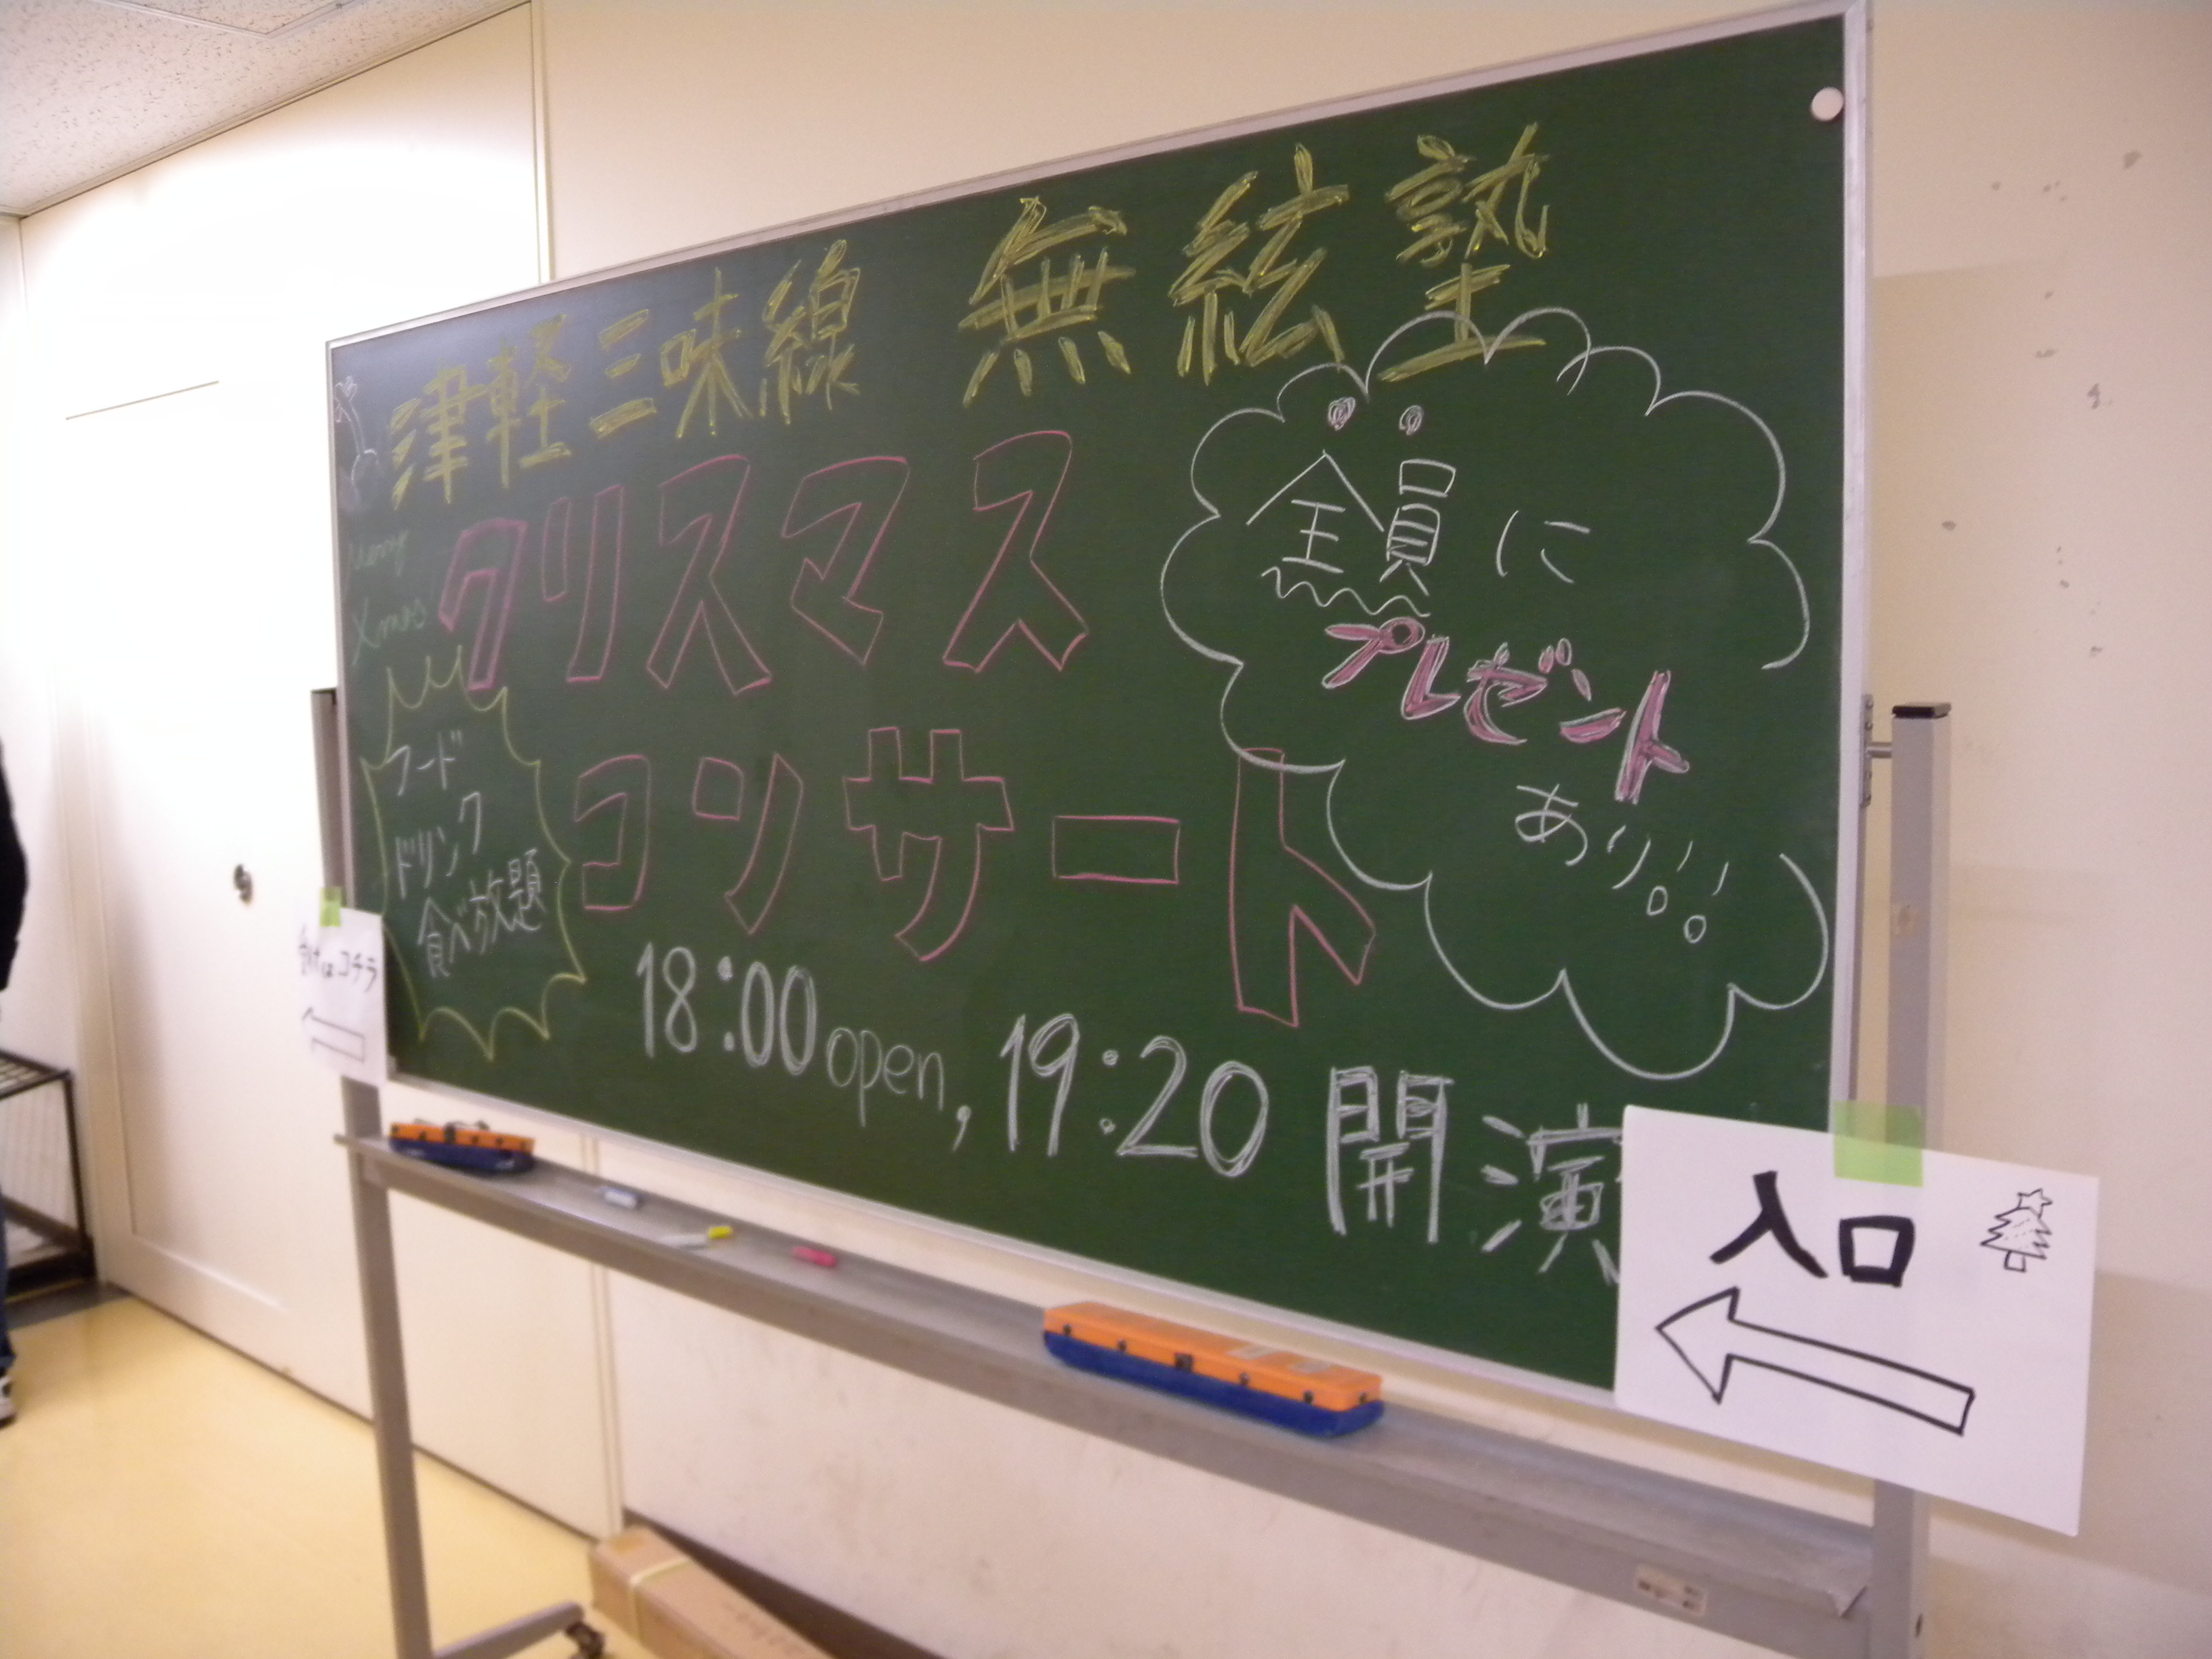 津軽三味線 無絃塾
クリスマス
コンサート
全員に
プレゼント
あり!!
Merry
Xmas
フード
ドリンク
食べ放題
18:00 open, 19:20 開演
はコチラ
入口